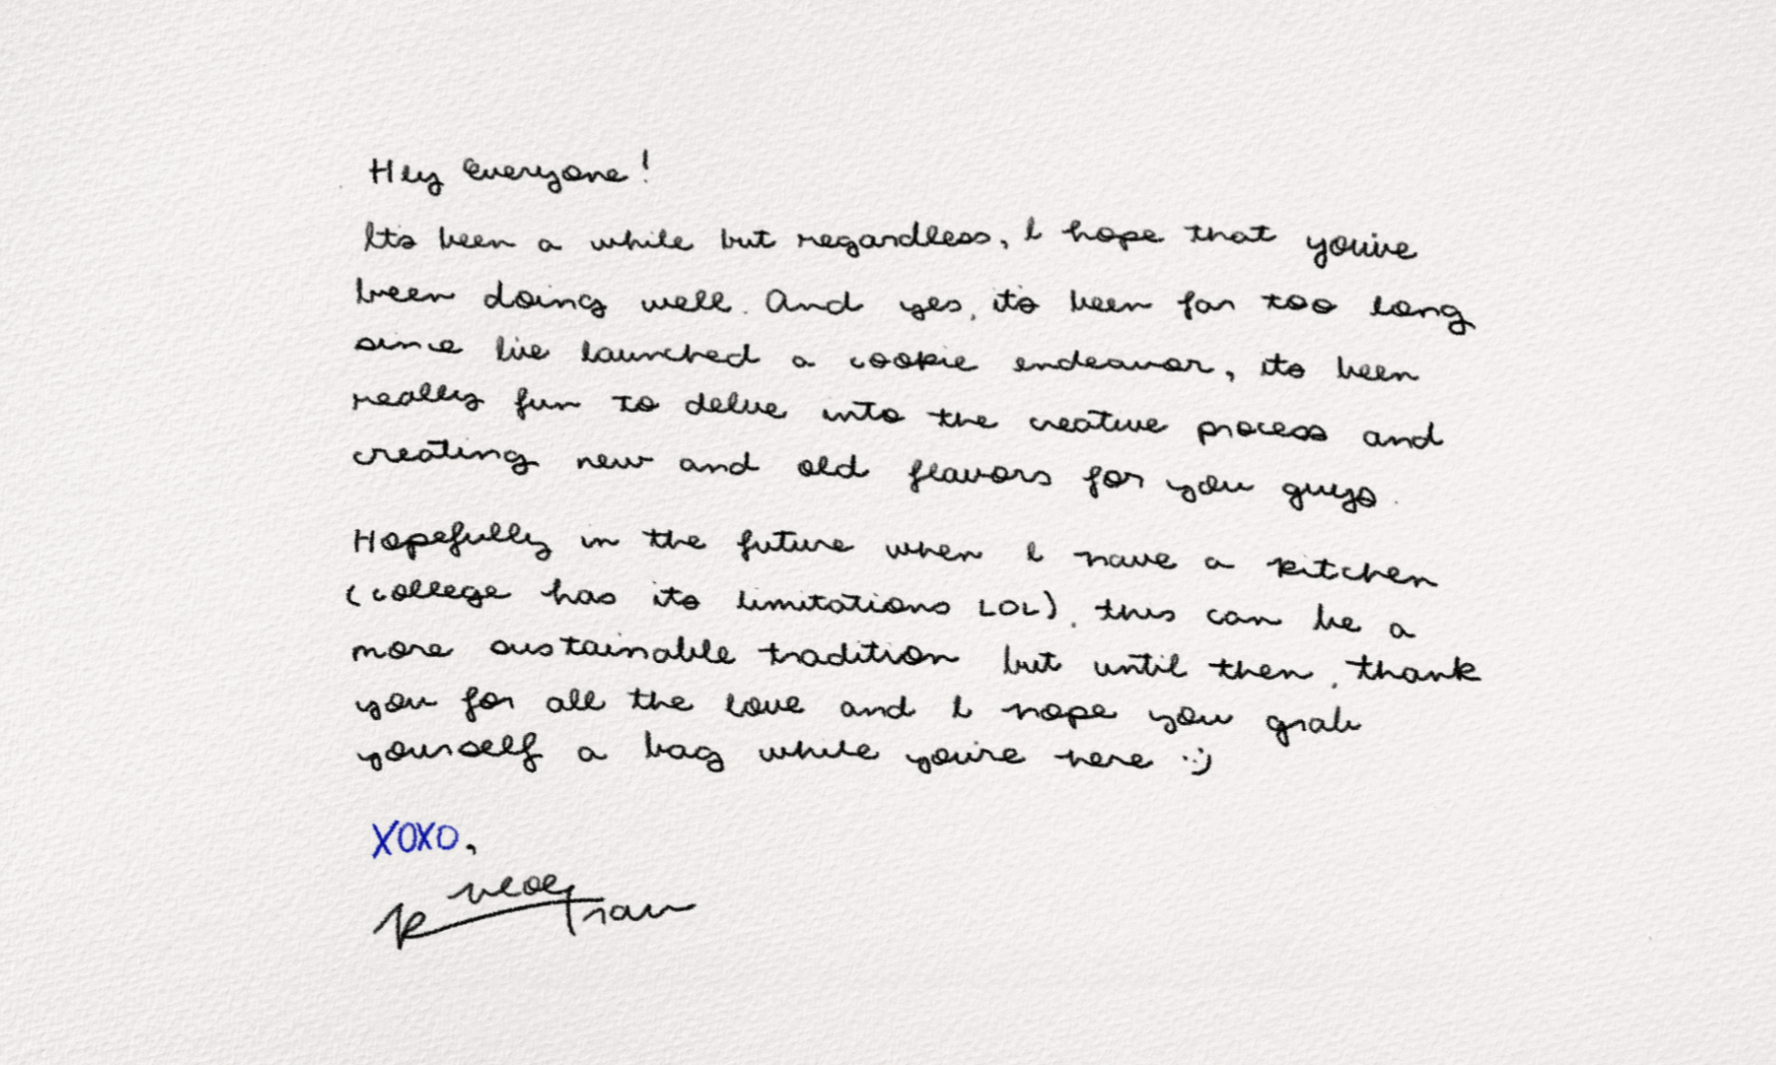 Hey Everyone!
Its been a while but regardless, I hope that you've
been doing well. And yes, its been far too long
since I've launched a cookie endeavor, its been
really fun to delve into the creative process and
creating new and old flavors for you guys.
Hopefully in the future when I have a kitchen
(college has its limitations LOL), this can be a
more sustainable tradition but until then, thank
you for all the love and I hope you grab
yourself a bag while you're here :)
XOXO,
Tran